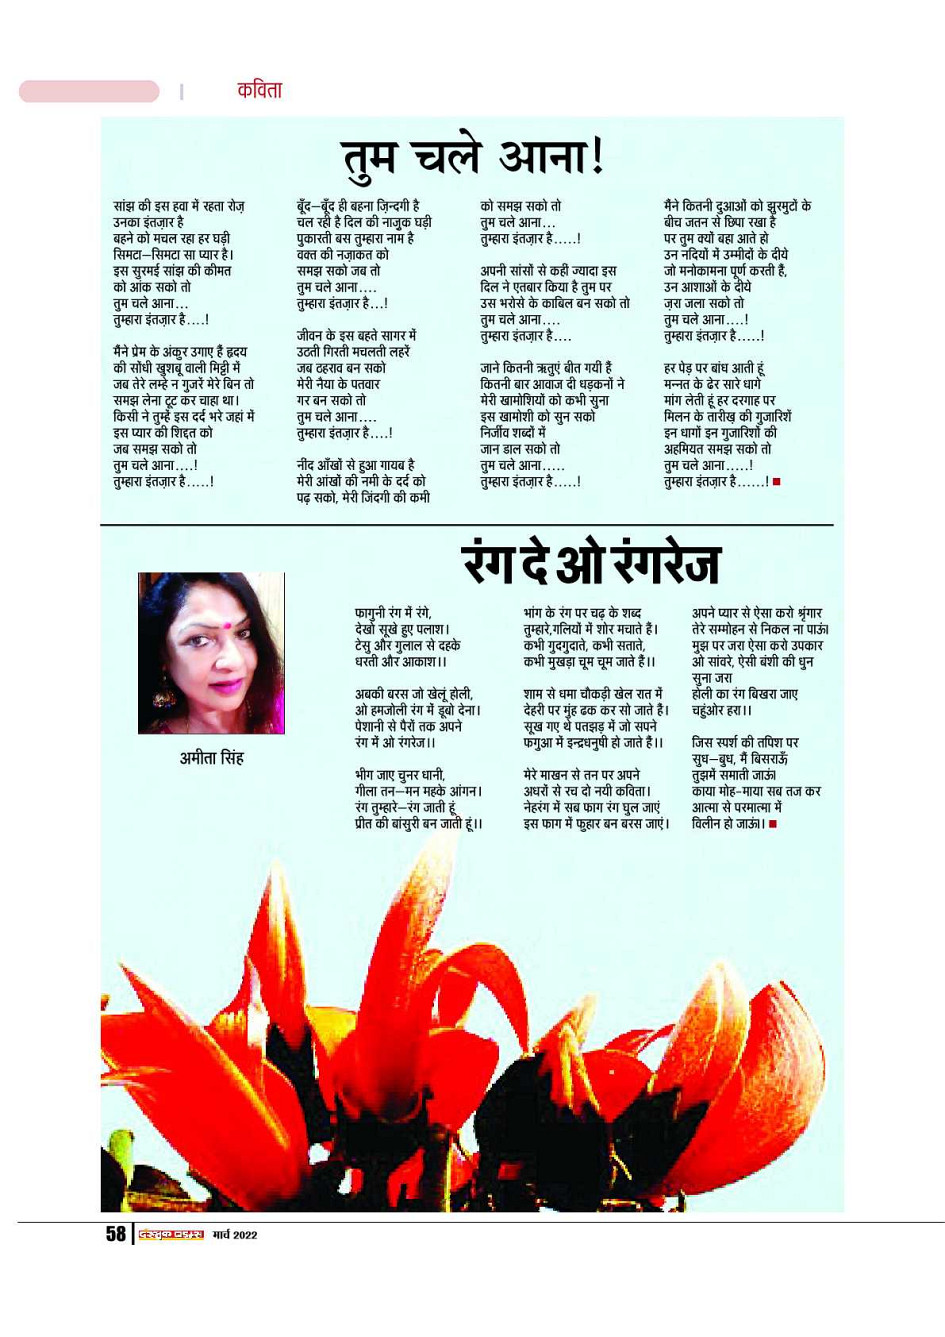 कविता
तुम चले आना!
सांझ की इस हवा में रहता रोज़
उनका इंतज़ार है
बहने को मचल रहा हर घड़ी
सिमटा–सिमटा सा प्यार है।
इस सुरमई सांझ की कीमत
को आंक सको तो
तुम चले आना...
तुम्हारा इंतज़ार है....!
मैंने प्रेम के अंकुर उगाए हैं हृदय
की सोंधी खुशबू वाली मिट्टी में
जब तेरे लम्हे न गुजरें मेरे बिन तो
समझ लेना टूट कर चाहा था।
किसी ने तुम्हें इस दर्द भरे जहां में
इस प्यार की शिद्दत को
जब समझ सको तो
तुम चले आना....!
तुम्हारा इंतज़ार है.....!
बूँद–बूँद ही बहना ज़िन्दगी है
चल रही है दिल की नाज़ुक घड़ी
पुकारती बस तुम्हारा नाम है
वक्त की नज़ाकत को
समझ सको जब तो
तुम चले आना....
तुम्हारा इंतज़ार है...!
जीवन के इस बहते सागर में
उठती गिरती मचलती लहरें
जब ठहराव बन सको
मेरी नैया के पतवार
गर बन सको तो
तुम चले आना....
तुम्हारा इंतज़ार है....!
नीद आँखों से हुआ गायब है
मेरी आंखों की नमी के दर्द को
पढ़ सको, मेरी जिंदगी की कमी
को समझ सको तो
तुम चले आना...
तुम्हारा इंतज़ार है.....!
अपनी सांसों से कही ज्यादा इस
दिल ने एतबार किया है तुम पर
उस भरोसे के काबिल बन सको तो
तुम चले आना....
तुम्हारा इंतज़ार है....
जाने कितनी ऋतुएं बीत गयी हैं
कितनी बार आवाज दी धड़कनों ने
मेरी खामोशियों को कभी सुना
इस खामोशी को सुन सको
निर्जीव शब्दों में
जान डाल सको तो
तुम चले आना.....
तुम्हारा इंतज़ार है.....!
मैंने कितनी दुआओं को झुरमुटों के
बीच जतन से छिपा रखा है
पर तुम क्यों बहा आते हो
उन नदियों में उम्मीदों के दीये
जो मनोकामना पूर्ण करती हैं,
उन आशाओं के दीये
ज़रा जला सको तो
तुम चले आना....!
तुम्हारा इंतज़ार है.....!
हर पेड़ पर बांध आती हूं
मन्नत के ढेर सारे धागे
मांग लेती हूं हर दरगाह पर
मिलन के तारीख़ की गुजारिशें
इन धागों इन गुजारिशों की
अहमियत समझ सको तो
तुम चले आना.....!
तुम्हारा इंतज़ार है......!
रंग दे ओ रंगरेज
अमीता सिंह
फागुनी रंग में रंगे,
देखो सूखे हुए पलाश।
टेसु और गुलाल से दहके
धरती और आकाश।।
अबकी बरस जो खेलूं होली,
ओ हमजोली रंग में डूबो देना।
पेशानी से पैरों तक अपने
रंग में ओ रंगरेज।।
भीग जाए चुनर धानी,
गीला तन–मन महके आंगन।
रंग तुम्हारे–रंग जाती हूं
प्रीत की बांसुरी बन जाती हूं।।
भांग के रंग पर चढ़ के शब्द
तुम्हारे,गलियों में शोर मचाते हैं।
कभी गुदगुदाते, कभी सताते,
कभी मुखड़ा चूम चूम जाते हैं।।
शाम से धमा चौकड़ी खेल रात में
देहरी पर मुंह ढक कर सो जाते हैं।
सूख गए थे पतझड़ में जो सपने
फगुआ में इन्द्रधनुषी हो जाते हैं।।
मेरे माखन से तन पर अपने
अधरों से रच दो नयी कविता।
नेहरंग में सब फाग रंग घुल जाएं
इस फाग में फुहार बन बरस जाएं।
अपने प्यार से ऐसा करो श्रृंगार
तेरे सम्मोहन से निकल ना पाऊं।
मुझ पर जरा ऐसा करो उपकार
ओ सांवरे, ऐसी बंशी की धुन
सुना जरा
होली का रंग बिखरा जाए
चहुंओर हरा।।
जिस स्पर्श की तपिश पर
सुध–बुध, मैं बिसराऊँ
तुझमें समाती जाऊं।
काया मोह-माया सब तज कर
आत्मा से परमात्मा में
विलीन हो जाऊं।।
58
मार्च 2022